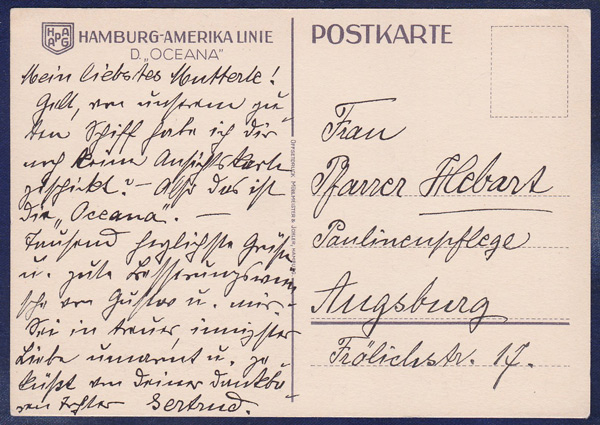 HAPAG
HAMBURG-AMERIKA LINIE
D. „OCEANA"
Mein liebstes Mutterle!
Gelt, von unserem gu-
ten Schiff habe ich Dir
noch keine Ansichtskarte
geschickt? – Also das ist
Die „Oceana". –
Tausend herzlichste Grüße
u. gute Besserungswün
sche von Gustav u. mir.
Sei in treuer, innigster
Liebe umarmt u. ge
küßt von Deiner dankba
ren Tochter Gertrud.
POSTKARTE
Frau
Pfarrer Hebart
Paulinenpflege
Augsburg
Frölichstr. 17.